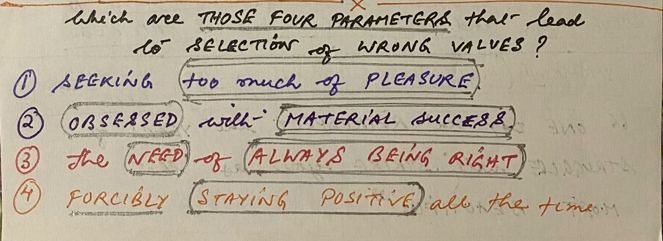 Which are THOSE FOUR PARAMETERS that lead
to SELECTION of WRONG VALUES?
① SEEKING too much of PLEASURE
② OBSESSED with MATERIAL SUCCESS
③ the NEED of ALWAYS BEING RIGHT
④ FORCIBLY STAYING POSITIVE all the time